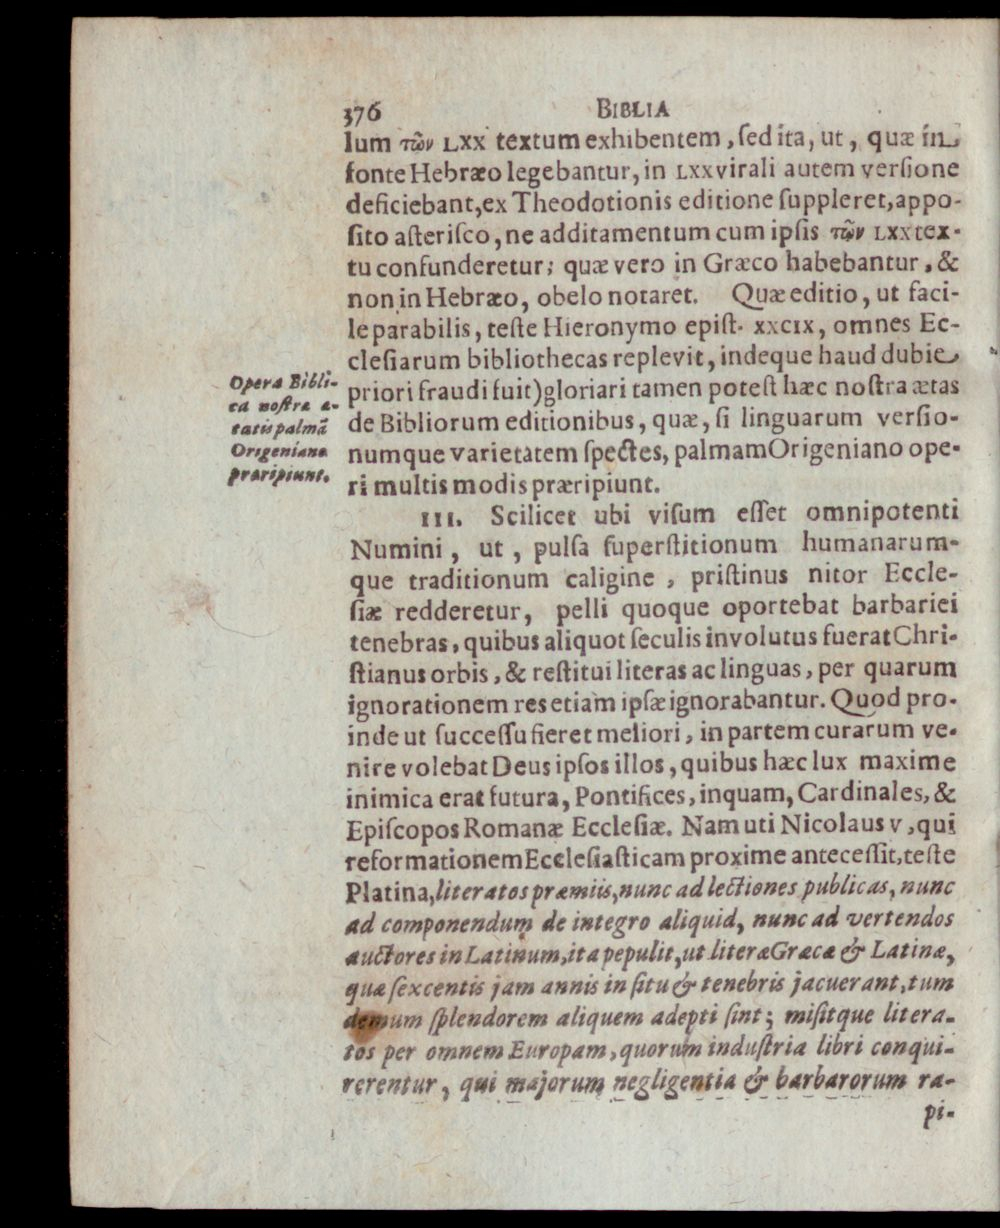 376 BIBLIA
lum τῶν LXX textum exhibentem, ſed ita, ut, quæ in
fonte Hebræo legebantur, in LXXvirali autem verſione
deficiebant, ex Theodotionis editione ſuppleret, appo-
ſito aſteriſco, ne additamentum cum ipſis τῶν LXX tex-
tu confunderetur; quæ vero in Græco habebantur, &
non in Hebræo, obelo notaret. Quæ editio, ut faci-
le parabilis, teſte Hieronymo epiſt. XXCIX, omnes Ec-
cleſiarum bibliothecas replevit, indeque haud dubie
priori fraudi fuit) gloriari tamen poteſt hæc noſtra ætas
de Bibliorum editionibus, quæ, ſi linguarum verſio-
numque varietatem ſpectes, palmam Origeniano ope-
ri multis modis præripiunt.
Opera Bibli-
ca noſtræ æ-
tatis palmã
Origenianæ
præripiunt.
III. Scilicet ubi viſum eſſet omnipotenti
Numini, ut, pulſa ſuperſtitionum humanarum-
que traditionum caligine, priſtinus nitor Eccle-
ſiæ redderetur, pelli quoque oportebat barbariei
tenebras, quibus aliquot ſeculis involutus fuerat Chri-
ſtianus orbis, & reſtitui literas ac linguas, per quarum
ignorationem res etiam ipſæ ignorabantur. Quod pro-
inde ut ſucceſſu fieret meliori, in partem curarum ve-
nire volebat Deus ipſos illos, quibus hæc lux maxime
inimica erat futura, Pontifices, inquam, Cardinales, &
Epiſcopos Romanæ Eccleſiæ. Nam uti Nicolaus V, qui
reformationem Eccleſiaſticam proxime anteceſſit, teſte
Platina, literatos præmiis, nunc ad lectiones publicas, nunc
ad componendum de integro aliquid, nunc ad vertendos
auctores in Latinum, ita pepulit, ut literæ Græcæ & Latinæ,
quæ ſexcentis jam annis in ſitu & tenebris jacuerant, tum
demum ſplendorem aliquem adepti ſint; miſitque litera-
tos per omnem Europam, quorum induſtria libri conqui-
rerentur, qui majorum negligentia & barbarorum ra-
pi-